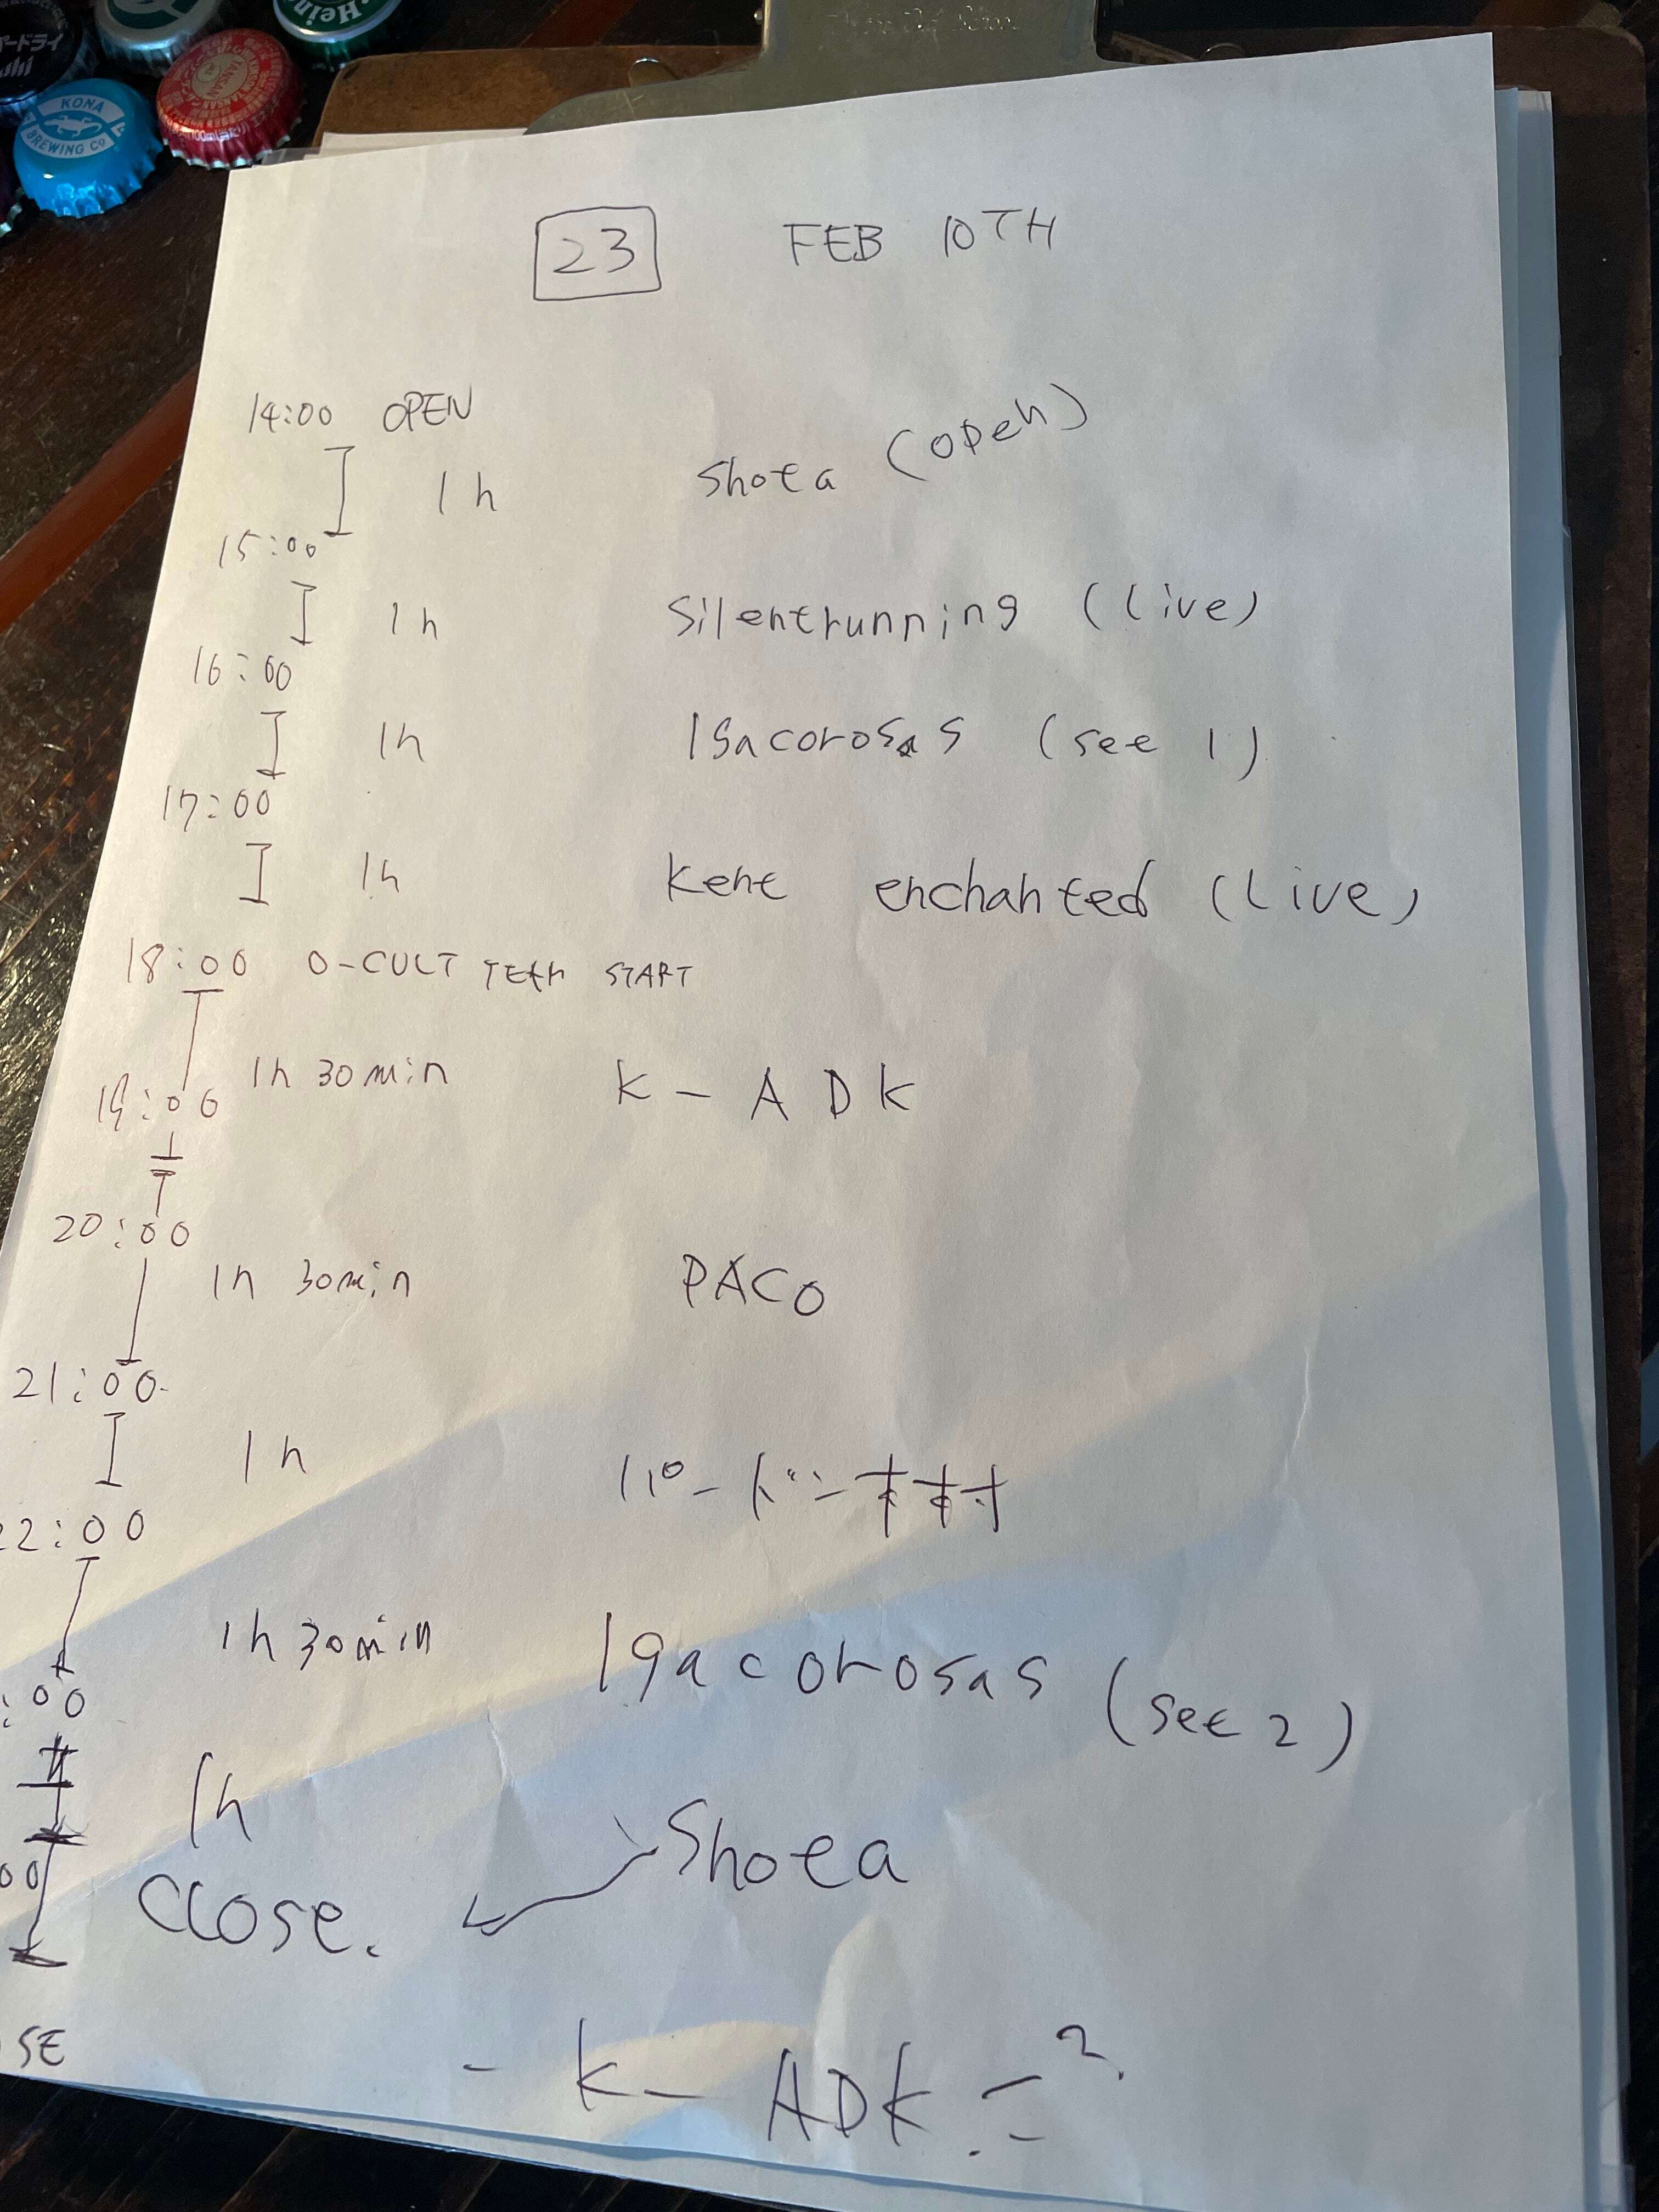 Hein
ードライ
KONA
BREWING CO
23 FEB 10TH
14:00 OPEN
1h Shota (open)
15:00
1h Silentrunning (Live)
16:00
1h Igacorosas (set 1)
17:00
1h Kent enchanted (Live)
18:00 O-CULT TEAM START
1h 30min K-ADK
19:00
20:00
1h 30min PACO
21:00
1h
22:00
1h 30min Igacorosas (set 2)
:00
1h Shota
00 Close.
SE
- K-ADK